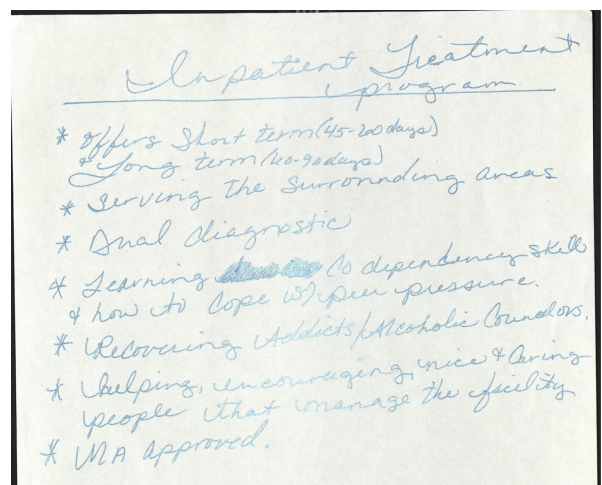 Inpatient Treatment
program
* Offers Short term (45-200 days)
& Long term (40-90 days)
* Serving the surrounding areas
* Dual diagnostic
* Learning Co dependency skill
& how to cope w/ peer pressure.
* Recovering Addicts/Alcoholic Councelors.
* helping, encouraging, nice & caring
people that manage the facility
* MA approved.